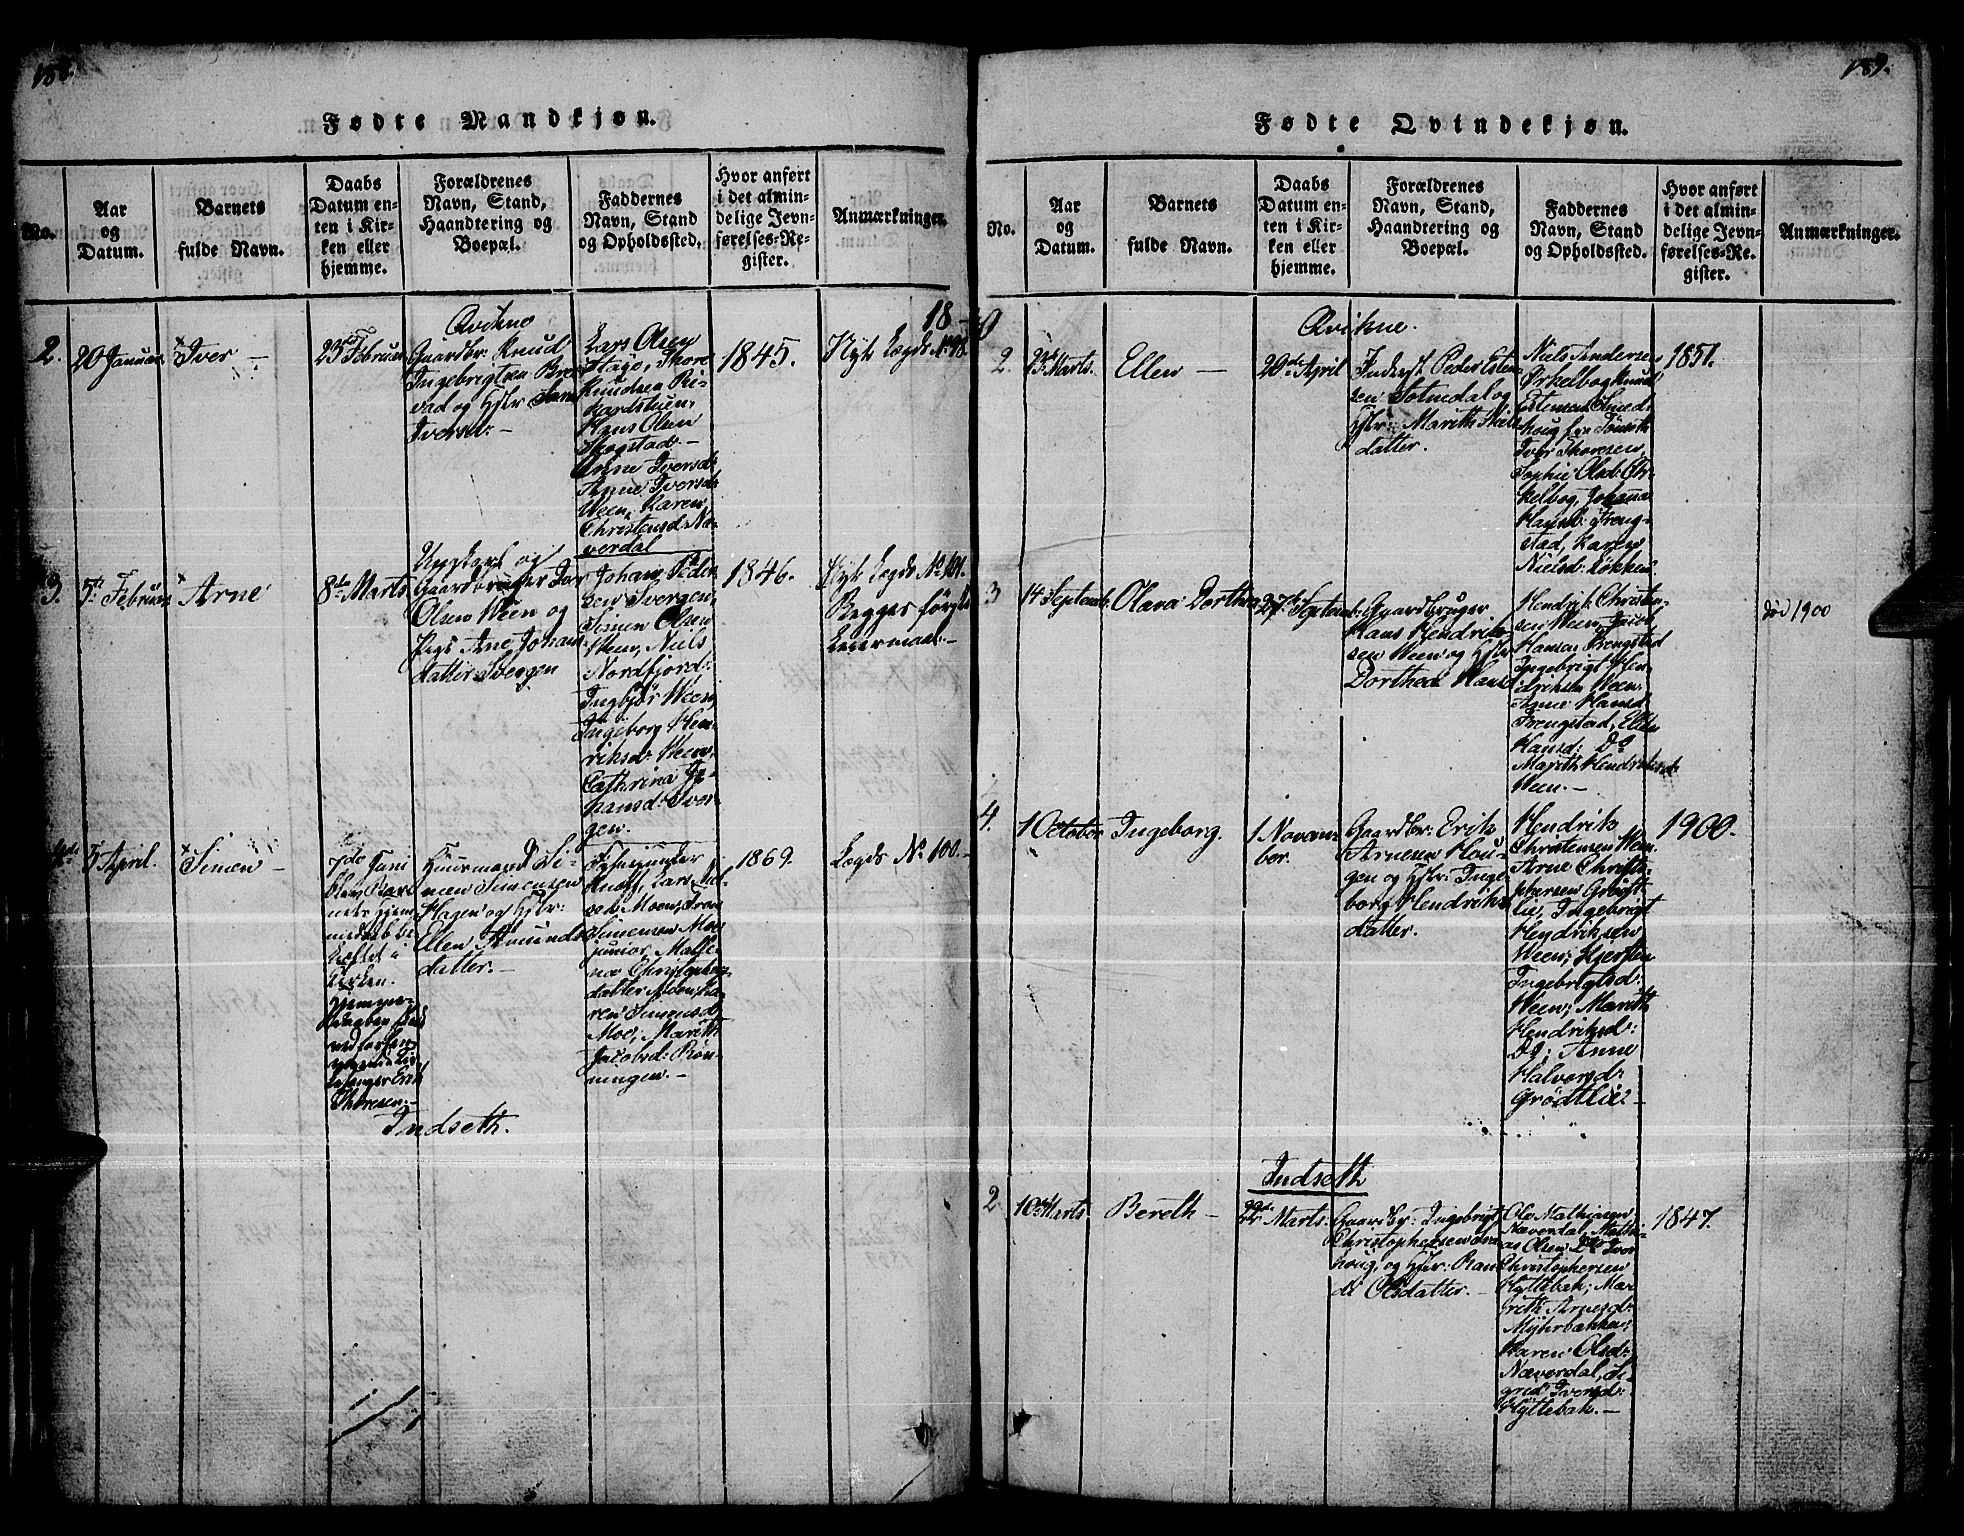 188.
Fødte Mandkjøn.
No.
Aar
og
Datum.
Barnets
fulde Navn.
Daabs
Datum en-
ten i Kir-
ken eller
hjemme.
Forældrenes
Navn, Stand,
Haandtering og
Boepæl.
Faddernes
Navn, Stand
og Opholdssted.
Hvor anført
i det almin-
delige Jevn-
førelses-Re-
gister.
Anmærkninger.
18-
Qvikne
2.
20 Januar
Iver -
23de Februar
Gaardbr: Knud
Ingebrigtsen Bre-
vad og Hstr
Iversd: -
Lars Olsen
Stage, Thore
Knudsen Ri-
kardstuen,
Hans Olsen
Skogstad: -
Anne Iversd:
Anne Iversd:
Ween, Karen
Christensd: Næ-
verdal
1845.
Nyt Lægds No 98.
3.
5te Februar
Arne
8de Marts
Ungkarl og
Gaardbruger
Olsen Ween og
Pige Ane Johans-
datter Svergen
Johan Peder-
sen Svergen,
Simen Olsen
Ween, Niels
Nordfjord:
Ingbjør Ween,
Ingeborg Hen-
riksd: Ween,
Cathrina Jo-
hansd: Sver-
gen.
1846.
Nyt Lægds No 101.
Begges første
Leiermaal. -
5 April.
Simen -
7de Juni
blev Bar-
nets Hjem-
medaab be-
kræftet i
Kirken.
Erik
Thoresen. -
Huusmand Si-
men Simensen
Hagen og Hstr:
Ellen Amunds-
datter. -
Lars Niel-
sen Moen,
Simensen Moe
junior,
Christopher-
datter Moen, Ka-
ren Simensd:
Moe, Marith
Jacobsd: Røn-
ningen. -
1869.
Lægds No 100. -
Indseth.
189.
Fødte Qvindekjøn.
No.
Aar
og
Datum.
Barnets
fulde Navn.
Daabs
Datum en-
ten i Kir-
ken eller
hjemme.
Forældrenes
Navn, Stand,
Haandtering og
Boepæl.
Faddernes
Navn, Stand
og Opholdssted.
Hvor anført
i det almin-
delige Jevn-
førelses-Re-
gister.
Anmærkninger.
Qvikne.
2.
Marts.
Ellen -
20de April
Inderst Peder Esten-
sen og
Hstr: Marith Niels-
datter.
Niels Andersen
Ørkelbog Knud
Estensen Smed-
houg fra Tønseth
Iver Thoresen,
Sophie Olsd: Ør-
kelbog, Johanna
Hansd: Freng-
stad, Karen
Nielsd: Løkken
1851.
3
14 Septembr.
Olava Dorthea
27de Septembr.
Gaardbruger
Hans Hendrik-
sen Ween og Hstr
Dorthea Hansd
Hendrik Christen-
sen Ween,
Hansen Frengstad
Ingebrigt Hen-
driksen Ween
Anne Hansd
Frengstad, Ellen
Hansd: Do
Marith Hendriksd
Ween. -
død 1900
4.
1 October
Ingeborg.
1 Novem-
ber.
Gaardbr: Erik
Arnesen Hou-
gen og Hstr: Inge-
borg Hendriks-
datter.
Hendrik
Christensen Ween
Arne Christo-
phersen Grøtt-
lie, Ingebrigt
Hendriksen
Ween; Kjersten
Ingebrigtsd:
Ween; Marith
Hendriksd:
Do; Anne
Halvorsd:
Grødtlie -
1900.
Indseth
2.
10de Marts.
Bereth -
22de Marts.
Gaardbr: Ingebrigt
Christophersen
houg, og Hstr: Ran-
di Olsdatter. -
Ole Mathiasen
Næverdal, Mathi-
as Olsen Do Iver
Christophersen
Hyttebak; Ma-
rith Arnesd:
Mytrbakken;
Karen Olsd:
Næverdal, Si-
grid Iversd:
Hyttebak. -
1847.